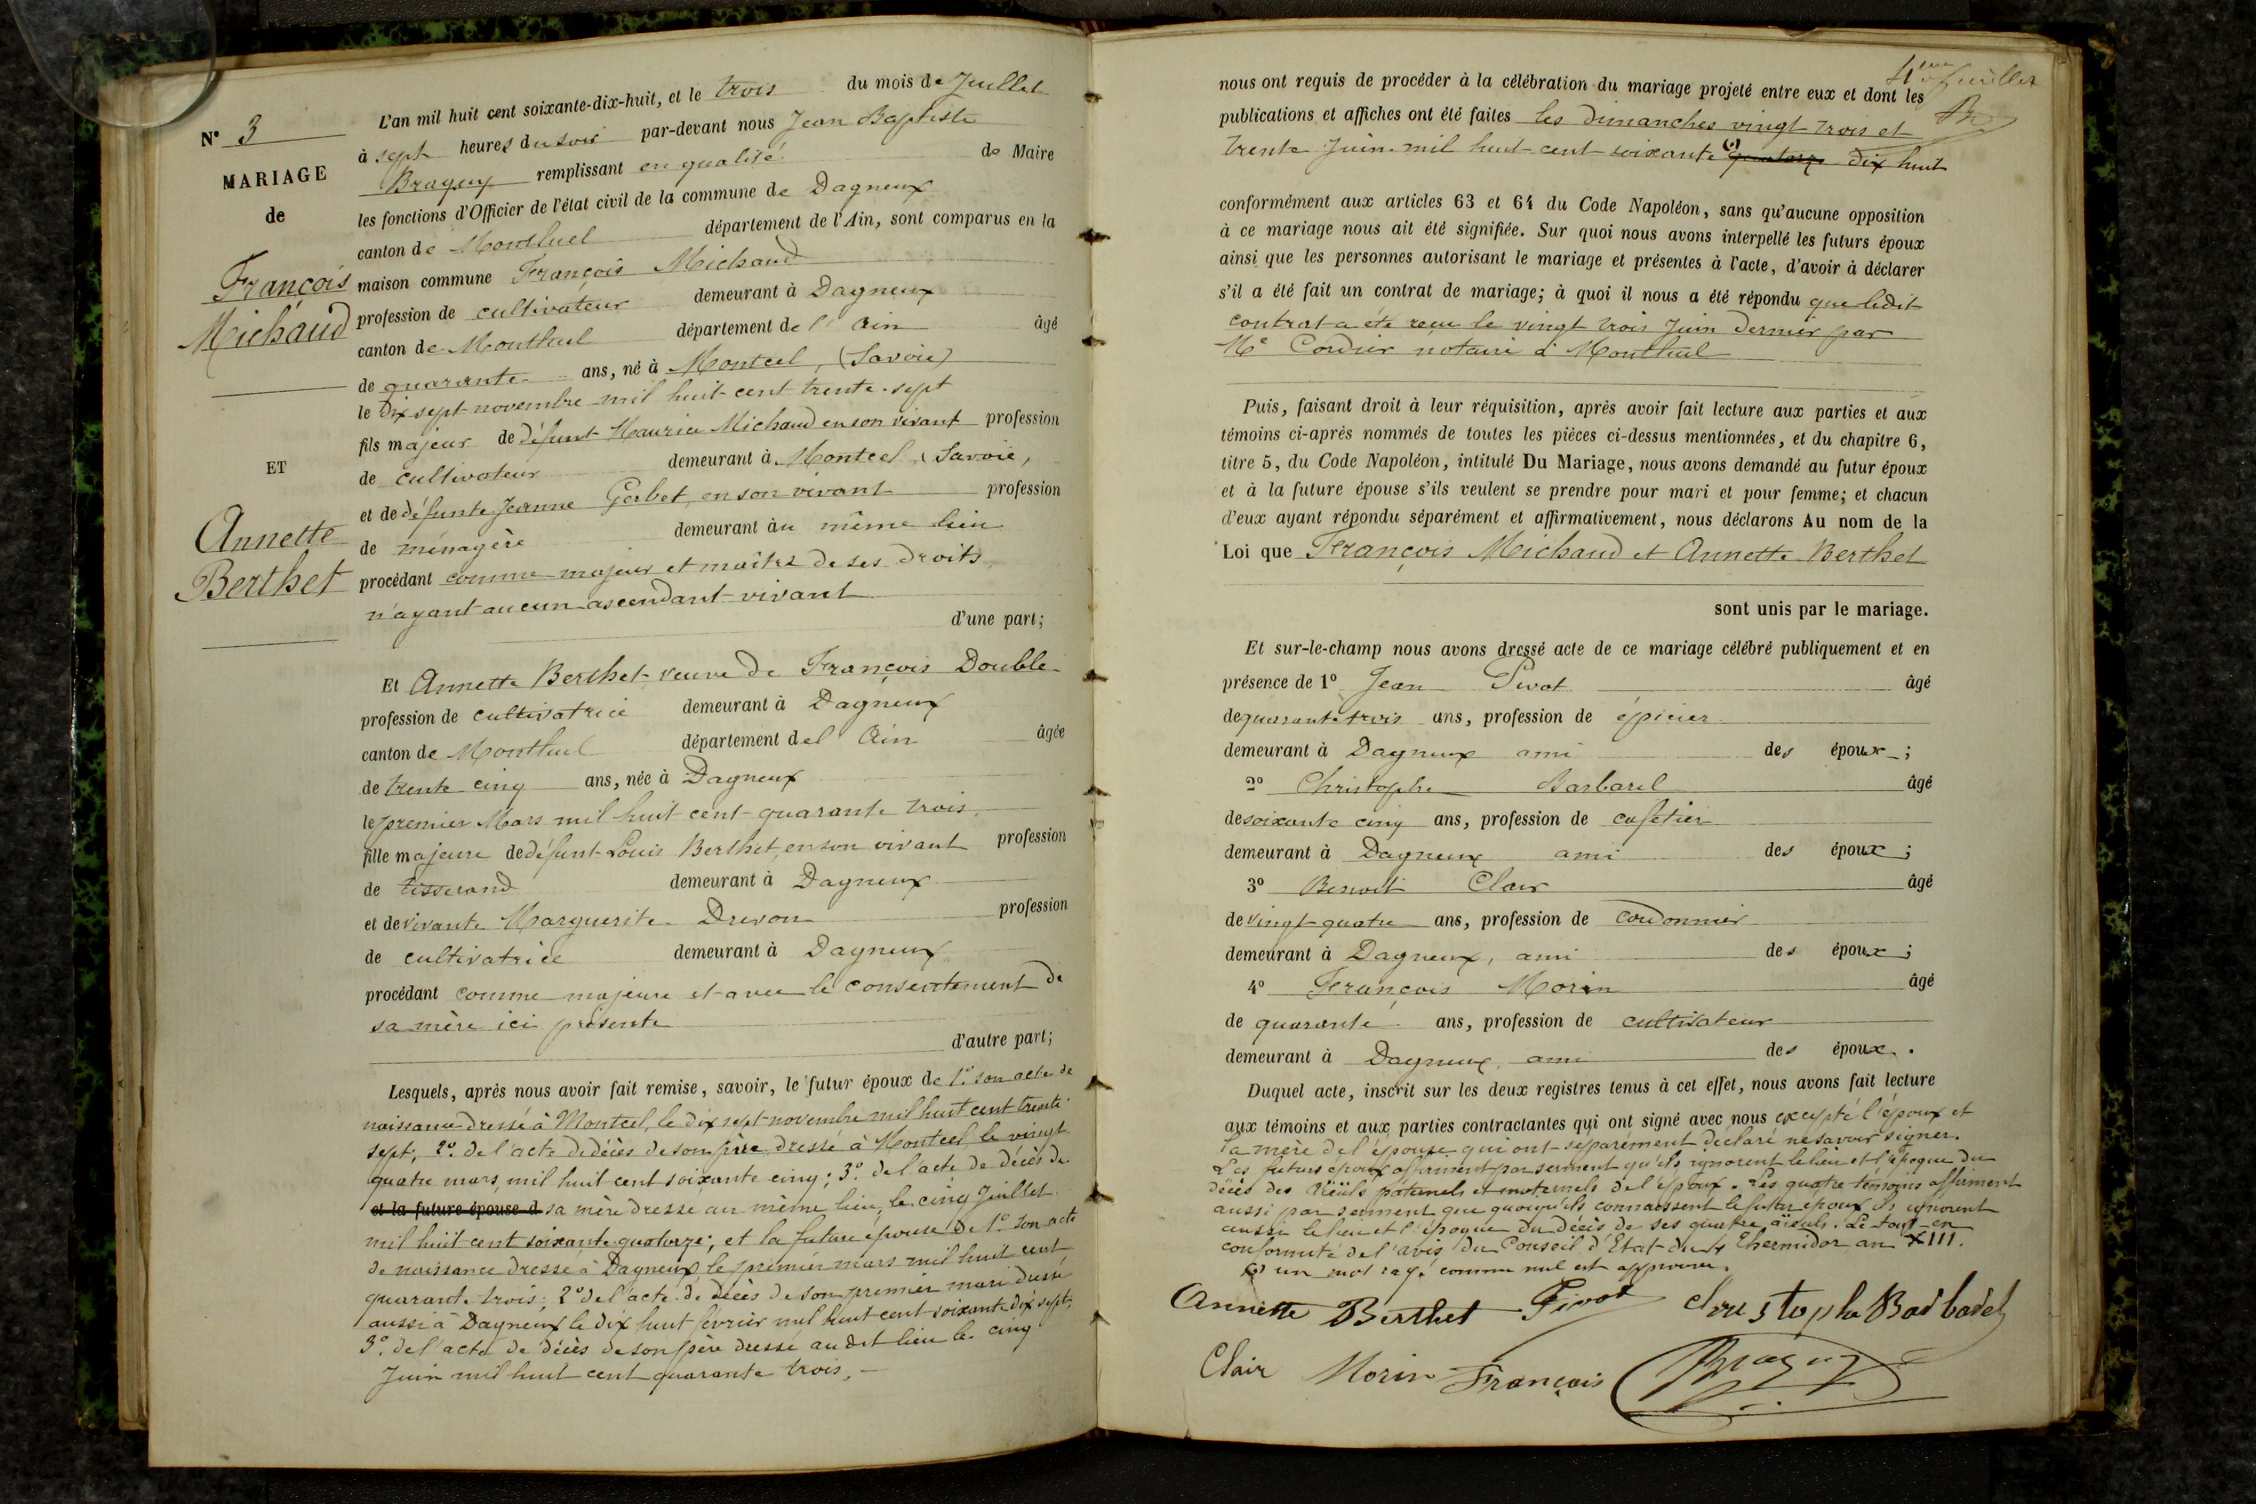 N° 3
MARIAGE
de
François
Michaud
ET
Annette
Berthet
L'an mil huit cent soixante-dix-huit, et le trois du mois de Juillet
à sept heures du soir par-devant nous Jean Baptiste
Braguy remplissant en qualité de Maire
les fonctions d'Officier de l'état civil de la commune de Dagneux
canton de Montluel département de l'Ain, sont comparus en la
maison commune François Michaud
profession de cultivateur demeurant à Dagneux
canton de Montluel département de l'Ain âgé
de quarante ans, né à Montcel, (Savoie)
le dix sept novembre mil huit cent trente-sept
fils majeur de défunt Maurice Michaud en son vivant profession
de cultivateur demeurant à Montcel (Savoie,
et de défunte Jeanne Gerbet, en son vivant profession
de ménagère demeurant au même lieu
procédant comme majeur et maître de ses droits,
n'ayant aucun ascendant vivant
d'une part;
Et Annette Berthet veuve de François Double
profession de cultivatrice demeurant à Dagneux
canton de Montluel département del' Ain âgée
de trente cinq ans, née à Dagneux
le premier Mars mil huit cent quarante trois,
fille majeure de défunt Louis Berthet, en son vivant profession
de tisserand demeurant à Dagneux
et de vivante Marguerite Drevon profession
de cultivatrice demeurant à Dagneux
procédant comme majeure et avec le consentement de
sa mère ici présente
d'autre part;
Lesquels, après nous avoir fait remise, savoir, le futur époux de 1° son acte de
naissance dressé à Montcel, le dix sept novembre mil huit cent trente
sept; 2° de l'acte de décès de son père dressé à Montcel le vingt
quatre mars, mil huit cent soixante cinq; 3° de l'acte de décès de
et la future épouse d sa mère dressé au même lieu, le cinq Juillet
mil huit cent soixante quatorze; et la future épouse de 1° son acte
de naissance dressé à Dagneux, le premier mars mil huit cent
quarante trois; 2° de l'acte de décès de son premier mari dressé
aussi à Dagneux le dix huit février mil huit cent soixante dix sept;
3° de l'acte de décès de son père dressé au dit lieu le cinq
Juin mil huit cent quarante trois, –
4eme feuillet
nous ont requis de procéder à la célébration du mariage projeté entre eux et dont les
publications et affiches ont été faites les dimanches vingt trois et
trente Juin mil huit cent soixante (1) quatorze dix huit
conformément aux articles 63 et 64 du Code Napoléon, sans qu'aucune opposition
à ce mariage nous ait été signifiée. Sur quoi nous avons interpellé les futurs époux
ainsi que les personnes autorisant le mariage et présentes à l'acte, d'avoir à déclarer
s'il a été fait un contrat de mariage; à quoi il nous a été répondu que ledit
contrat a été reçu le vingt trois Juin dernier par
Me Cordier notaire à Montluel
Puis, faisant droit à leur réquisition, après avoir fait lecture aux parties et aux
témoins ci-après nommés de toutes les pièces ci-dessus mentionnées, et du chapitre 6,
titre 5, du Code Napoléon, intitulé Du Mariage, nous avons demandé au futur époux
et à la future épouse s'ils veulent se prendre pour mari et pour femme; et chacun
d'eux ayant répondu séparément et affirmativement, nous déclarons Au nom de la
Loi que François Michaud et Annette Berthet
sont unis par le mariage.
Et sur-le-champ nous avons dressé acte de ce mariage célébré publiquement et en
présence de 1° Jean Pivot âgé
de quarante trois ans, profession de épicier
demeurant à Dagneux ami des époux;
2° Christophe Barbarel âgé
de soixante cinq ans, profession de cafetier
demeurant à Dagneux ami des époux;
3° Benoit Clair âgé
de vingt-quatre ans, profession de cordonnier
demeurant à Dagneux, ami des époux;
4° François Morin âgé
de quarante ans, profession de cultivateur
demeurant à Dagneux, ami des époux.
Duquel acte, inscrit sur les deux registres tenus à cet effet, nous avons fait lecture
aux témoins et aux parties contractantes qui ont signé avec nous excepté l'époux et
la mère de l'épouse qui ont séparément déclaré ne savoir signer.
Les futurs époux affirment par serment qu'ils ignorent le lieu et l'époque du
décès des aïeuls paternels et maternels de l'époux. Les quatre témoins affirment
aussi par serment que quoiqu'ils connaissent le futur époux ils ignorent
aussi le lieu et l'époque du décès de ses quatre aïeuls. Le tout en
conformité de l'avis du Conseil d'Etat du 4 Thermidor an XIII.
(1) un mot rayé comme nul est approuvé.
Annette Berthet Pivot Christophe Barbarel
Clair Morin François Braguy